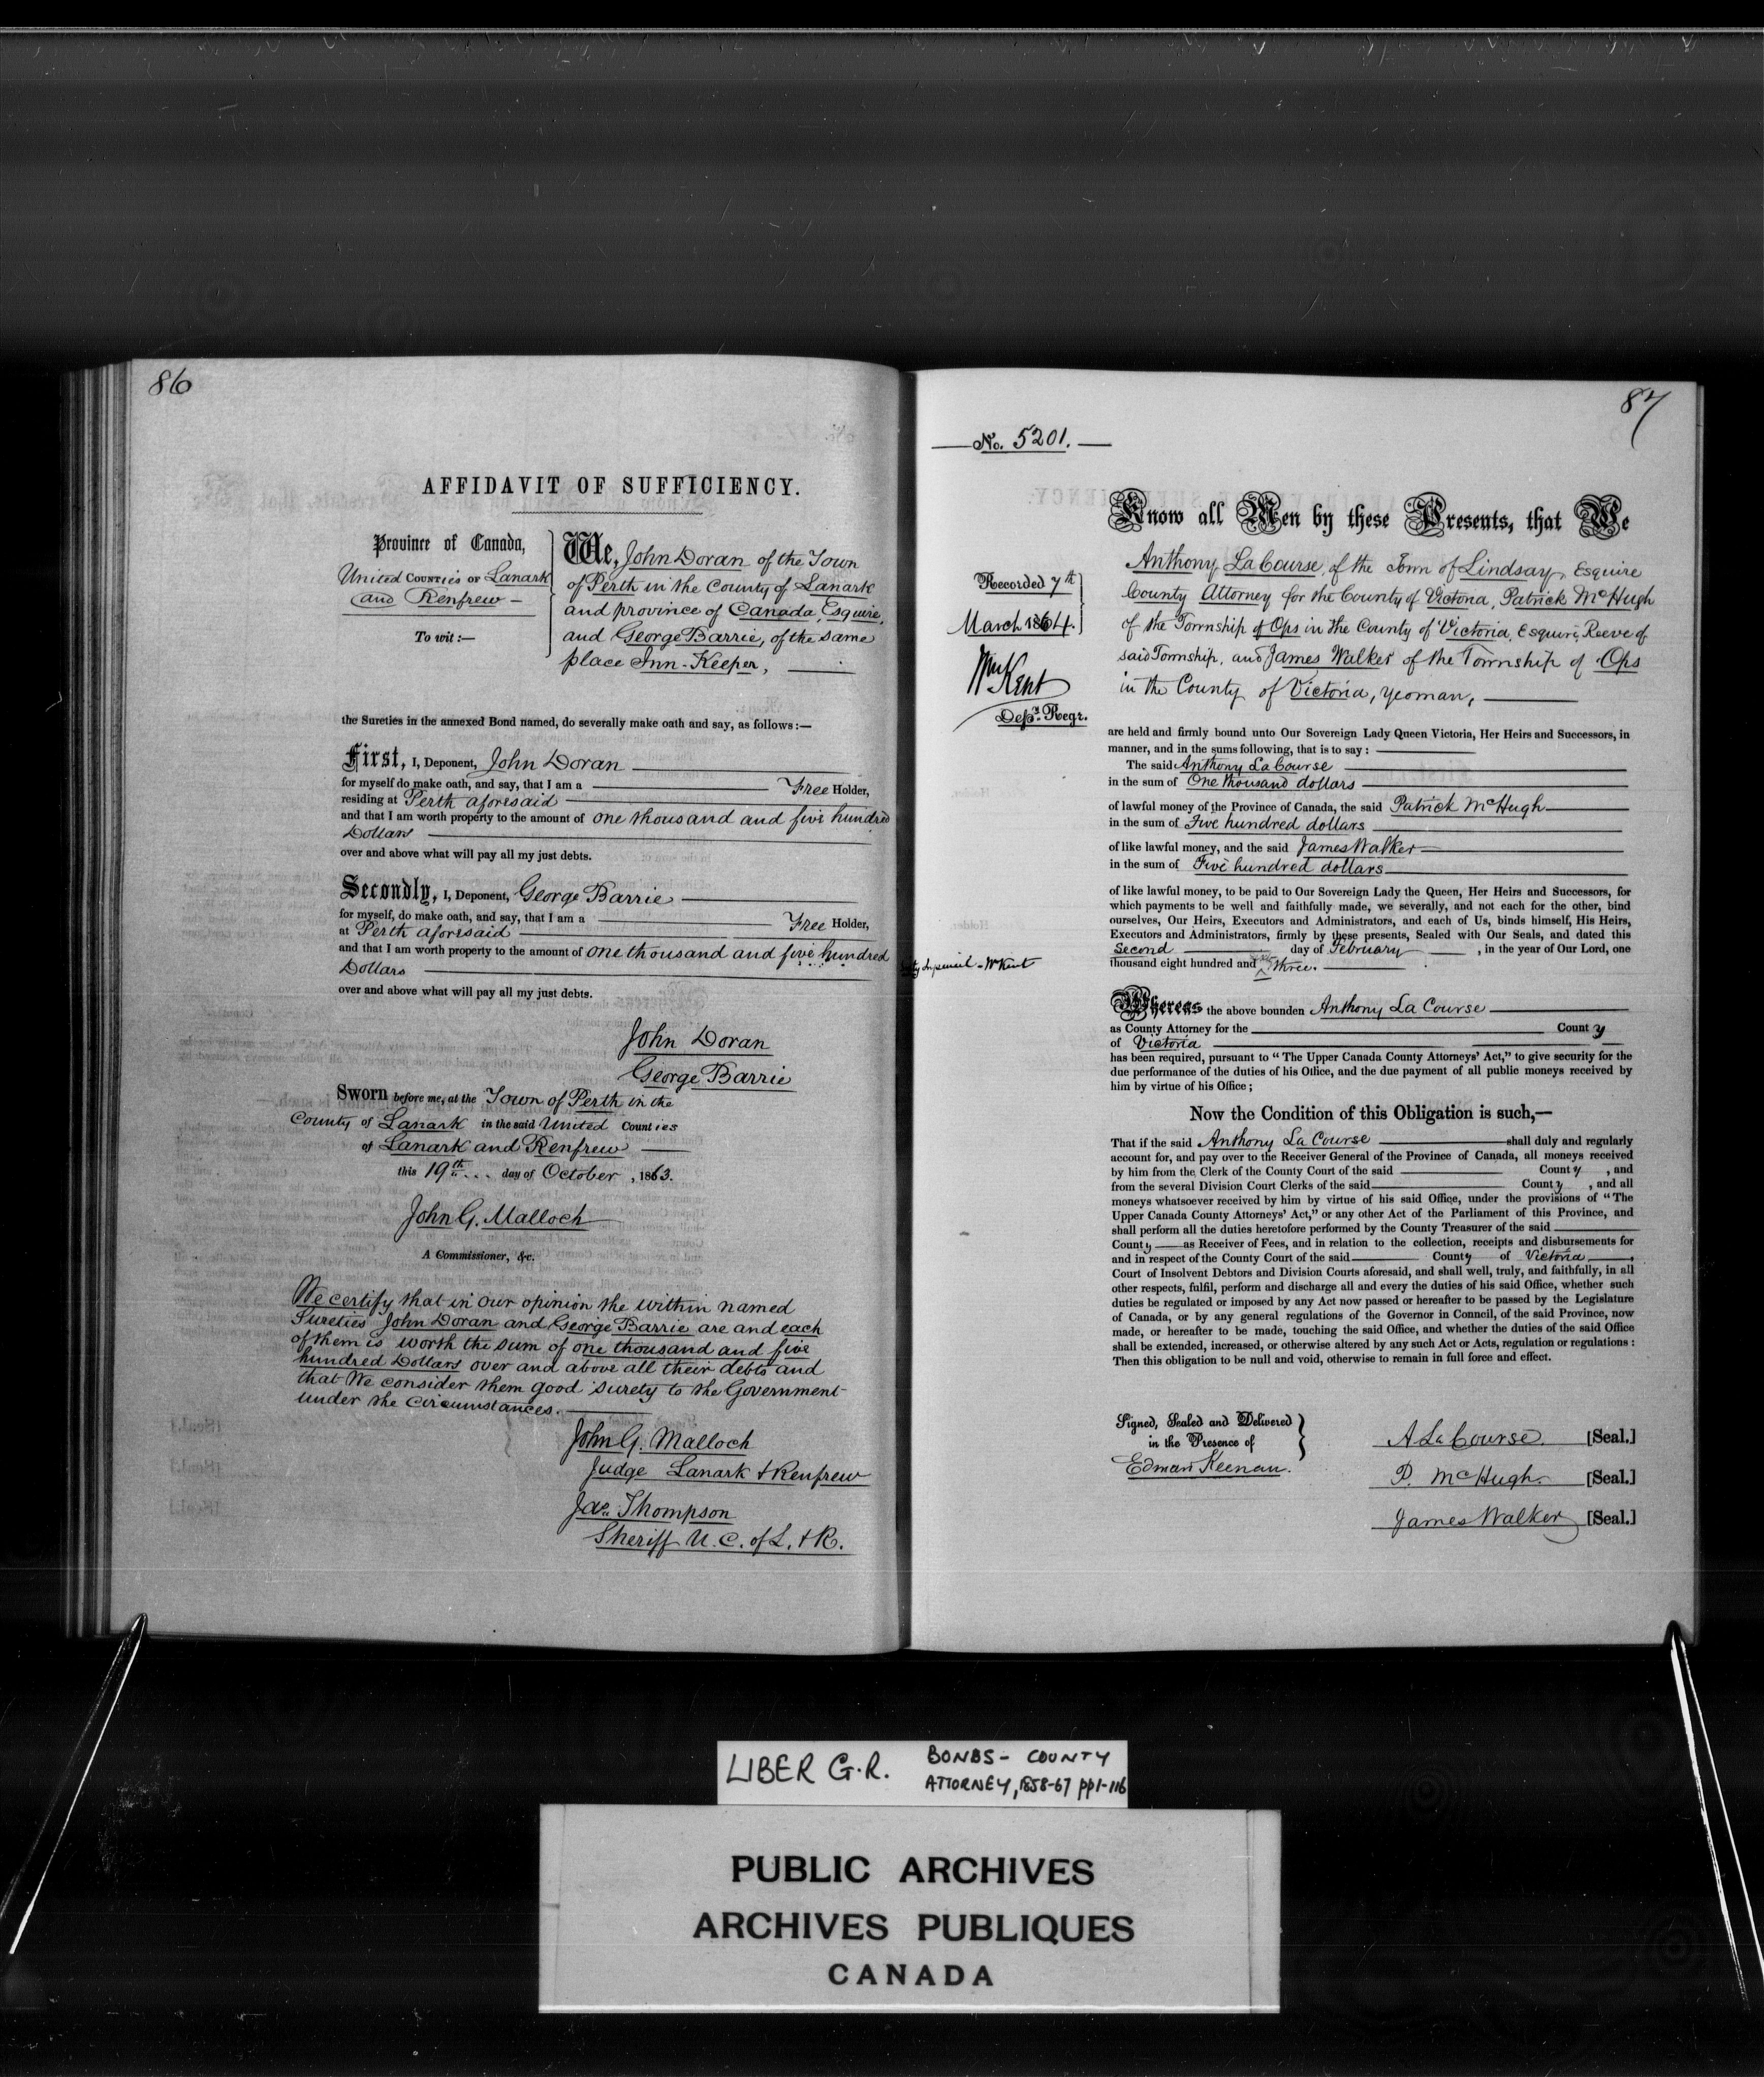 86
AFFIDAVIT OF SUFFICIENCY.
Province of Canada,
United COUNTIES OF Lanark
and Renfrew —
To wit:—
We, John Doran of the Town
of Perth in the County of Lanark
and province of Canada, Esquire,
and George Barrie, of the same
place Inn-Keeper,
the Sureties in the annexed Bond named, do severally make oath and say, as follows:—
First, I, Deponent, John Doran
for myself do make oath, and say, that I am a Free Holder,
residing at Perth aforesaid
and that I am worth property to the amount of one thousand and five hundred
Dollars
over and above what will pay all my just debts.
Secondly, I, Deponent, George Barrie
for myself, do make oath, and say, that I am a Free Holder,
at Perth aforesaid
and that I am worth property to the amount of one thousand and five hundred
Dollars
over and above what will pay all my just debts.
John Doran
George Barrie
Sworn before me, at the Town of Perth in the
County of Lanark in the said United Counties
of Lanark and Renfrew
this 19th day of October, 1863.
John G. Malloch
A Commissioner, &c.
We certify that in our opinion the within named
Sureties John Doran and George Barrie are and each
of them is worth the sum of one thousand and five
hundred Dollars over and above all their debts and
that We consider them good surety to the Government
under the circumstances.
John G. Malloch
Judge Lanark & Renfrew
Jas. Thompson
Sheriff U. C. of L. & R.
87
No. 5201.
Recorded 7th
March 1864.
Wm Kent
Depy. Regr.
Know all Men by these Presents, that We
Anthony La Course, of the Town of Lindsay, Esquire
County Attorney for the County of Victoria, Patrick McHugh
of the Township of Ops in the County of Victoria, Esquire, Reeve of
said Township, and James Walker of the Township of Ops
in the County of Victoria, yeoman,
are held and firmly bound unto Our Sovereign Lady Queen Victoria, Her Heirs and Successors, in
manner, and in the sums following, that is to say:
The said Anthony La Course
in the sum of One thousand dollars
of lawful money of the Province of Canada, the said Patrick McHugh
in the sum of Five hundred dollars
of like lawful money, and the said James Walker
in the sum of Five hundred dollars
of like lawful money, to be paid to Our Sovereign Lady the Queen, Her Heirs and Successors, for
which payments to be well and faithfully made, we severally, and not each for the other, bind
ourselves, Our Heirs, Executors and Administrators, and each of Us, binds himself, His Heirs,
Executors and Administrators, firmly by these presents, Sealed with Our Seals, and dated this
Second day of February, in the year of Our Lord, one
thousand eight hundred and sixty three.
in pencil - W Kent
Whereas the above bounden Anthony La Course
as County Attorney for the County
of Victoria
has been required, pursuant to “The Upper Canada County Attorneys' Act,” to give security for the
due performance of the duties of his Office, and the due payment of all public moneys received by
him by virtue of his Office;
Now the Condition of this Obligation is such,—
That if the said Anthony La Course shall duly and regularly
account for, and pay over to the Receiver General of the Province of Canada, all moneys received
by him from the Clerk of the County Court of the said County, and
from the several Division Court Clerks of the said County, and all
moneys whatsoever received by him by virtue of his said Office, under the provisions of “The
Upper Canada County Attorneys' Act,” or any other Act of the Parliament of this Province, and
shall perform all the duties heretofore performed by the County Treasurer of the said
County as Receiver of Fees, and in relation to the collection, receipts and disbursements for
and in respect of the County Court of the said County of Victoria,
Court of Insolvent Debtors and Division Courts aforesaid, and shall well, truly, and faithfully, in all
other respects, fulfil, perform and discharge all and every the duties of his said Office, whether such
duties be regulated or imposed by any Act now passed or hereafter to be passed by the Legislature
of Canada, or by any general regulations of the Governor in Council, of the said Province, now
made, or hereafter to be made, touching the said Office, and whether the duties of the said Office
shall be extended, increased, or otherwise altered by any such Act or Acts, regulation or regulations:
Then this obligation to be null and void, otherwise to remain in full force and effect.
Signed, Sealed and Delivered
in the Presence of
Edman Keenan.
A La Course. [Seal.]
P. McHugh. [Seal.]
James Walker [Seal.]
LIBER G.R. BONDS - COUNTY
ATTORNEY, 1858-67 pp 1-116
PUBLIC ARCHIVES
ARCHIVES PUBLIQUES
CANADA